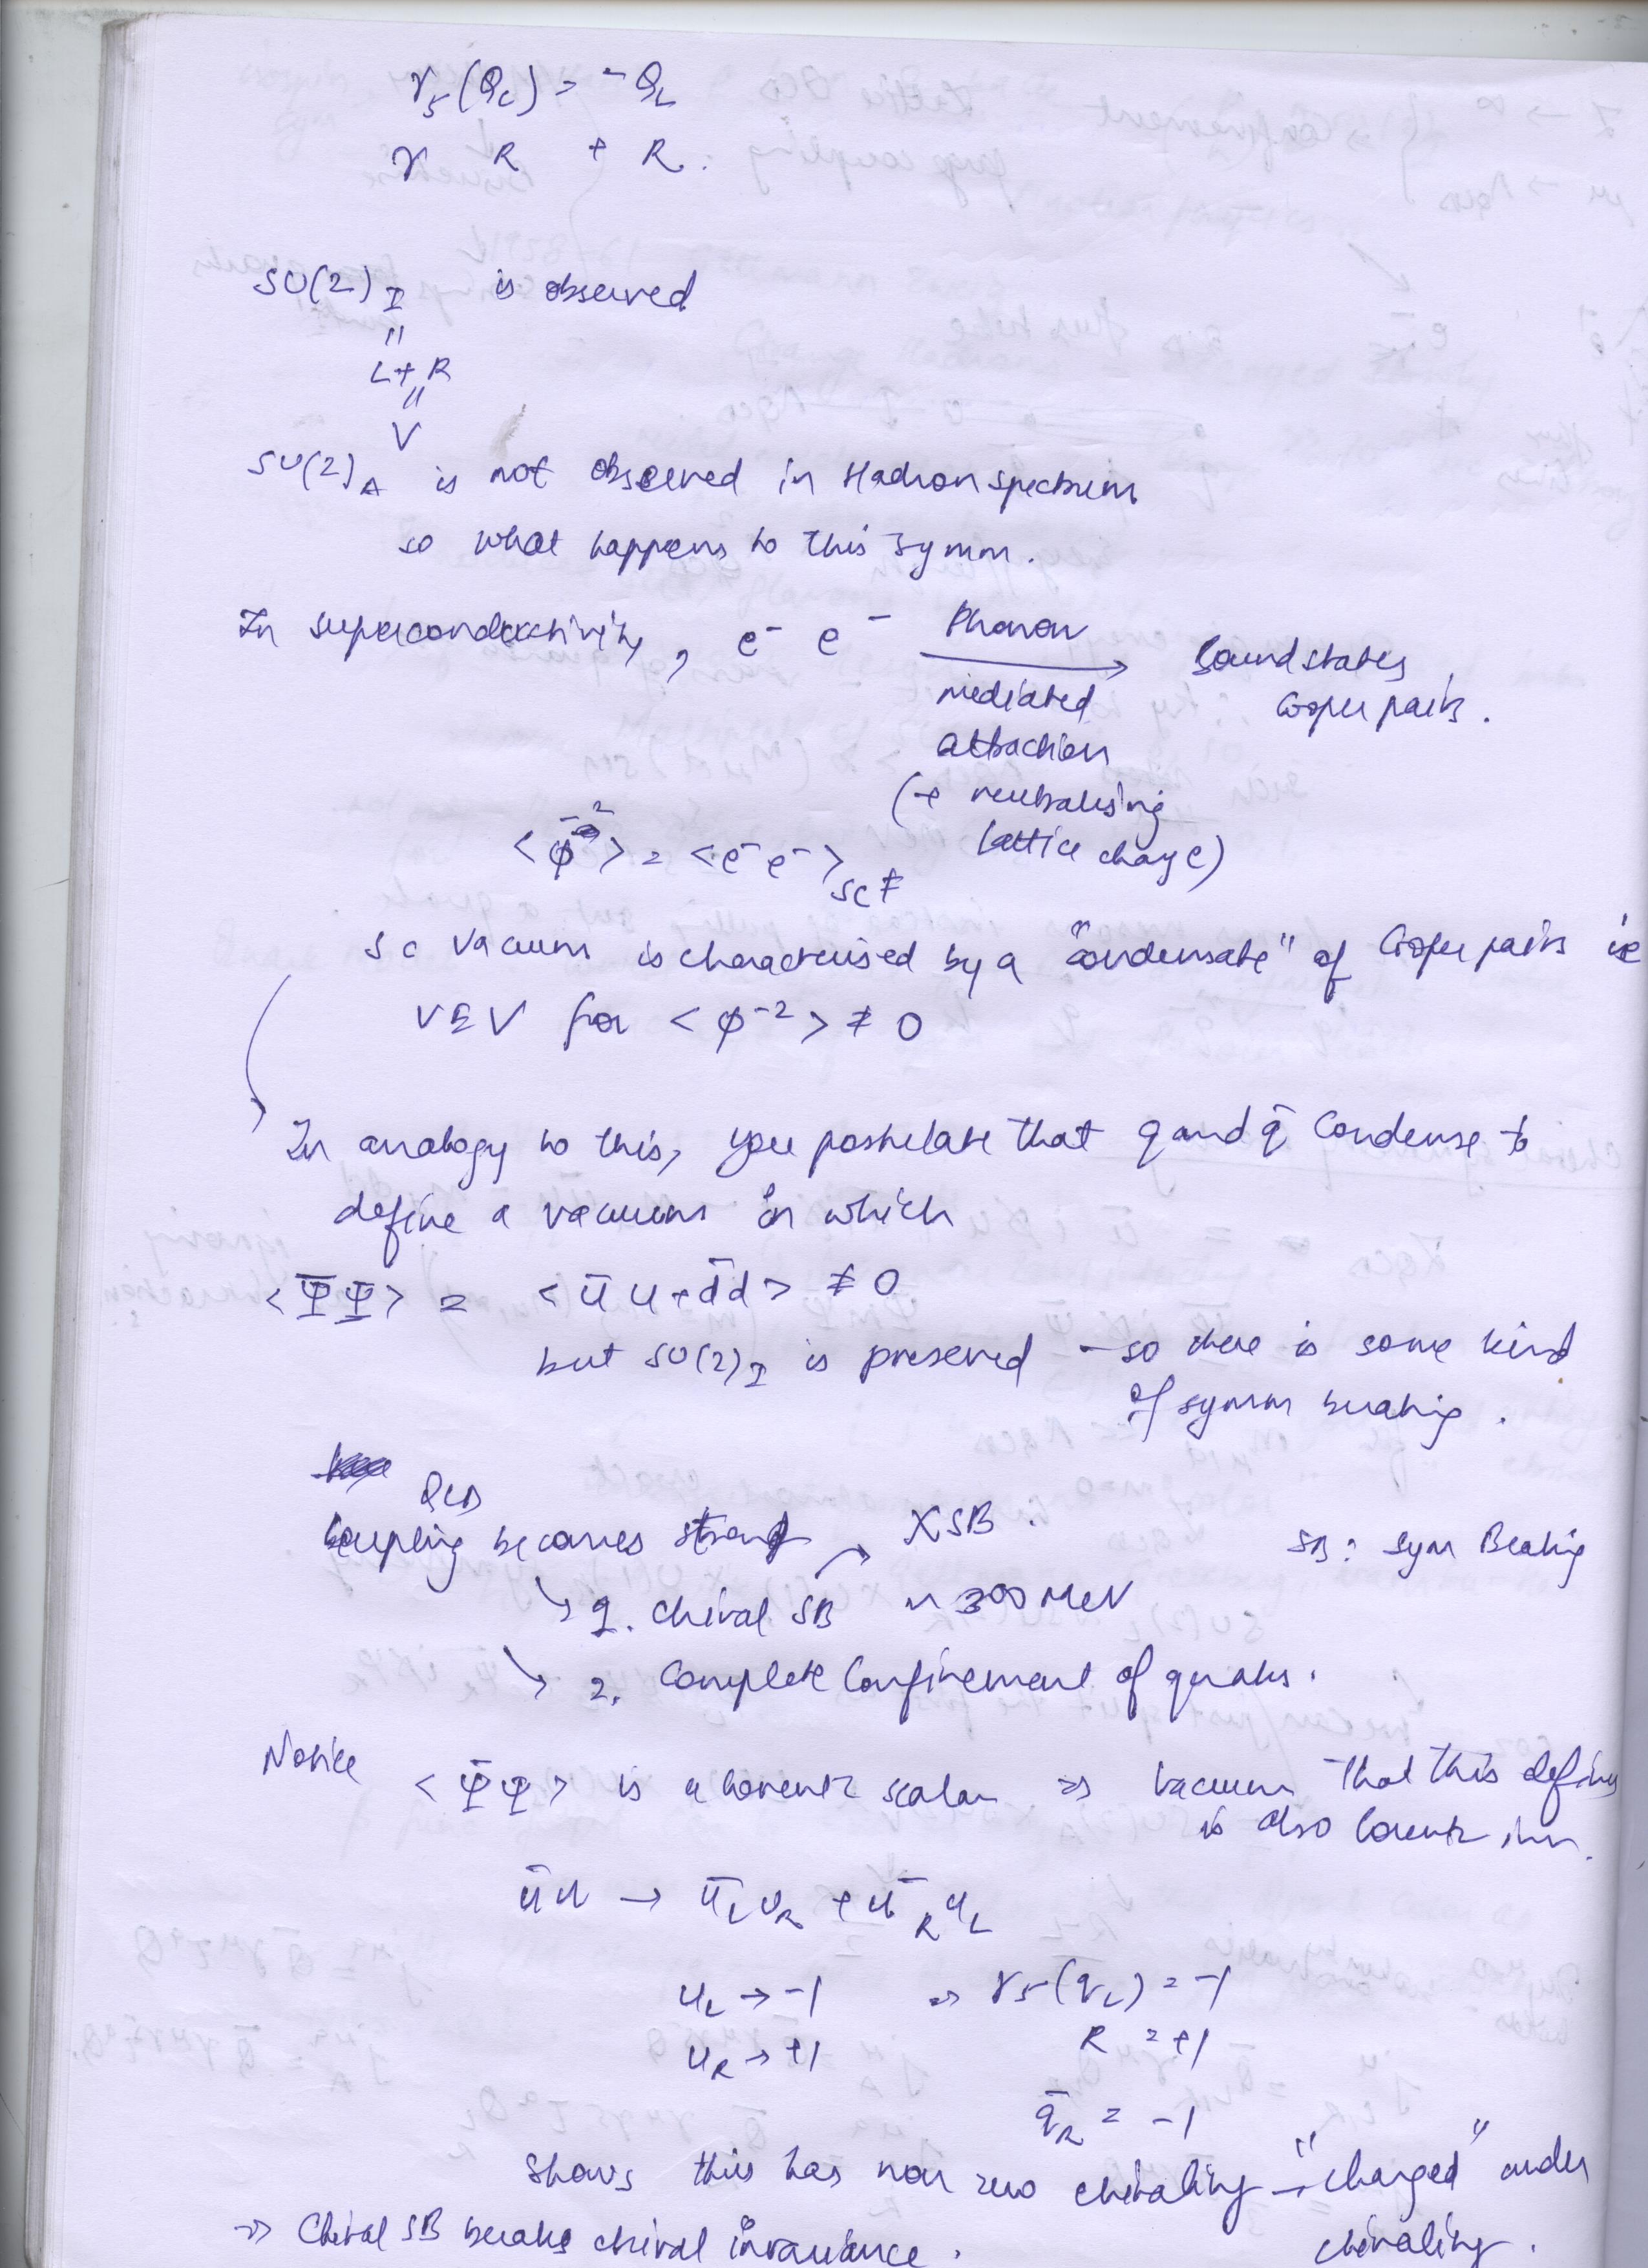 γ5(QL) = -QL
γ R + R.
SU(2)I is observed
"
L+R
"
V
SU(2)A is not observed in Hadron spectrum
so what happens to this symm.
In superconductivity, e⁻ e⁻ Phonon → Bound states
mediated Cooper pairs.
attraction
(+ neutralising
lattice charge)
<ϕ⁻²> = <e⁻e⁻>SC ≠
SC vacuum is characterised by a "condensate" of Cooper pairs ie
VEV for <ϕ⁻²> ≠ 0
In analogy to this, you postulate that q and q̄ condense to
define a vacuum in which
<Ψ̄Ψ> = <ūu + d̄d> ≠ 0
but SU(2)I is preserved - so there is some kind
of symm breaking.
QCD
Coupling becomes strong → XSB.
SB: Sym Breaking
↘ 1. Chiral SB ~ 300 MeV
↘ 2. Complete Confinement of quarks.
Notice <Ψ̄Ψ> is a Lorentz scalar ⇒ vacuum that this defines
is also Lorentz inv.
ūu → ūLuR + ūRuL
uL → -1 ⇒ γ5(qL) = -1
uR → +1 R = +1
q̄R = -1
shows this has non zero chirality → "charged" under
chirality.
⇒ Chiral SB breaks chiral invariance.